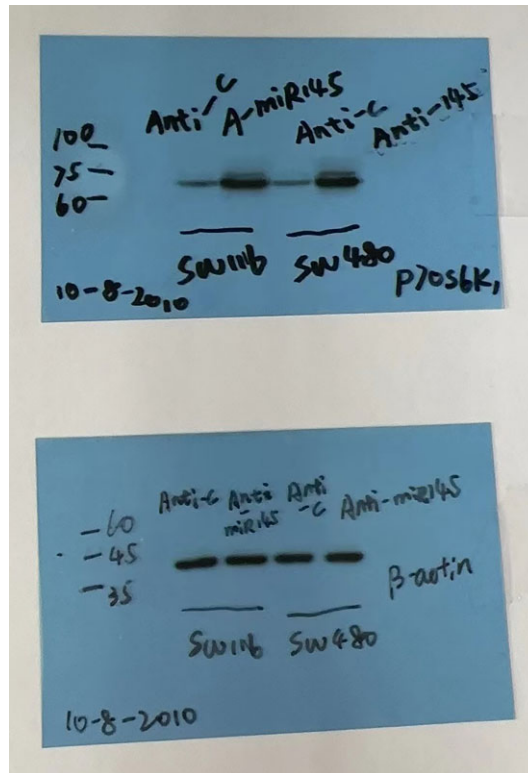 Anti-C A-miR145 Anti-C Anti-145
100
75
60
SW1116 SW480
10-8-2010 P70S6K1
Anti-C Anti-miR145 Anti-C Anti-miR145
60
45
35
β-actin
SW1116 SW480
10-8-2010